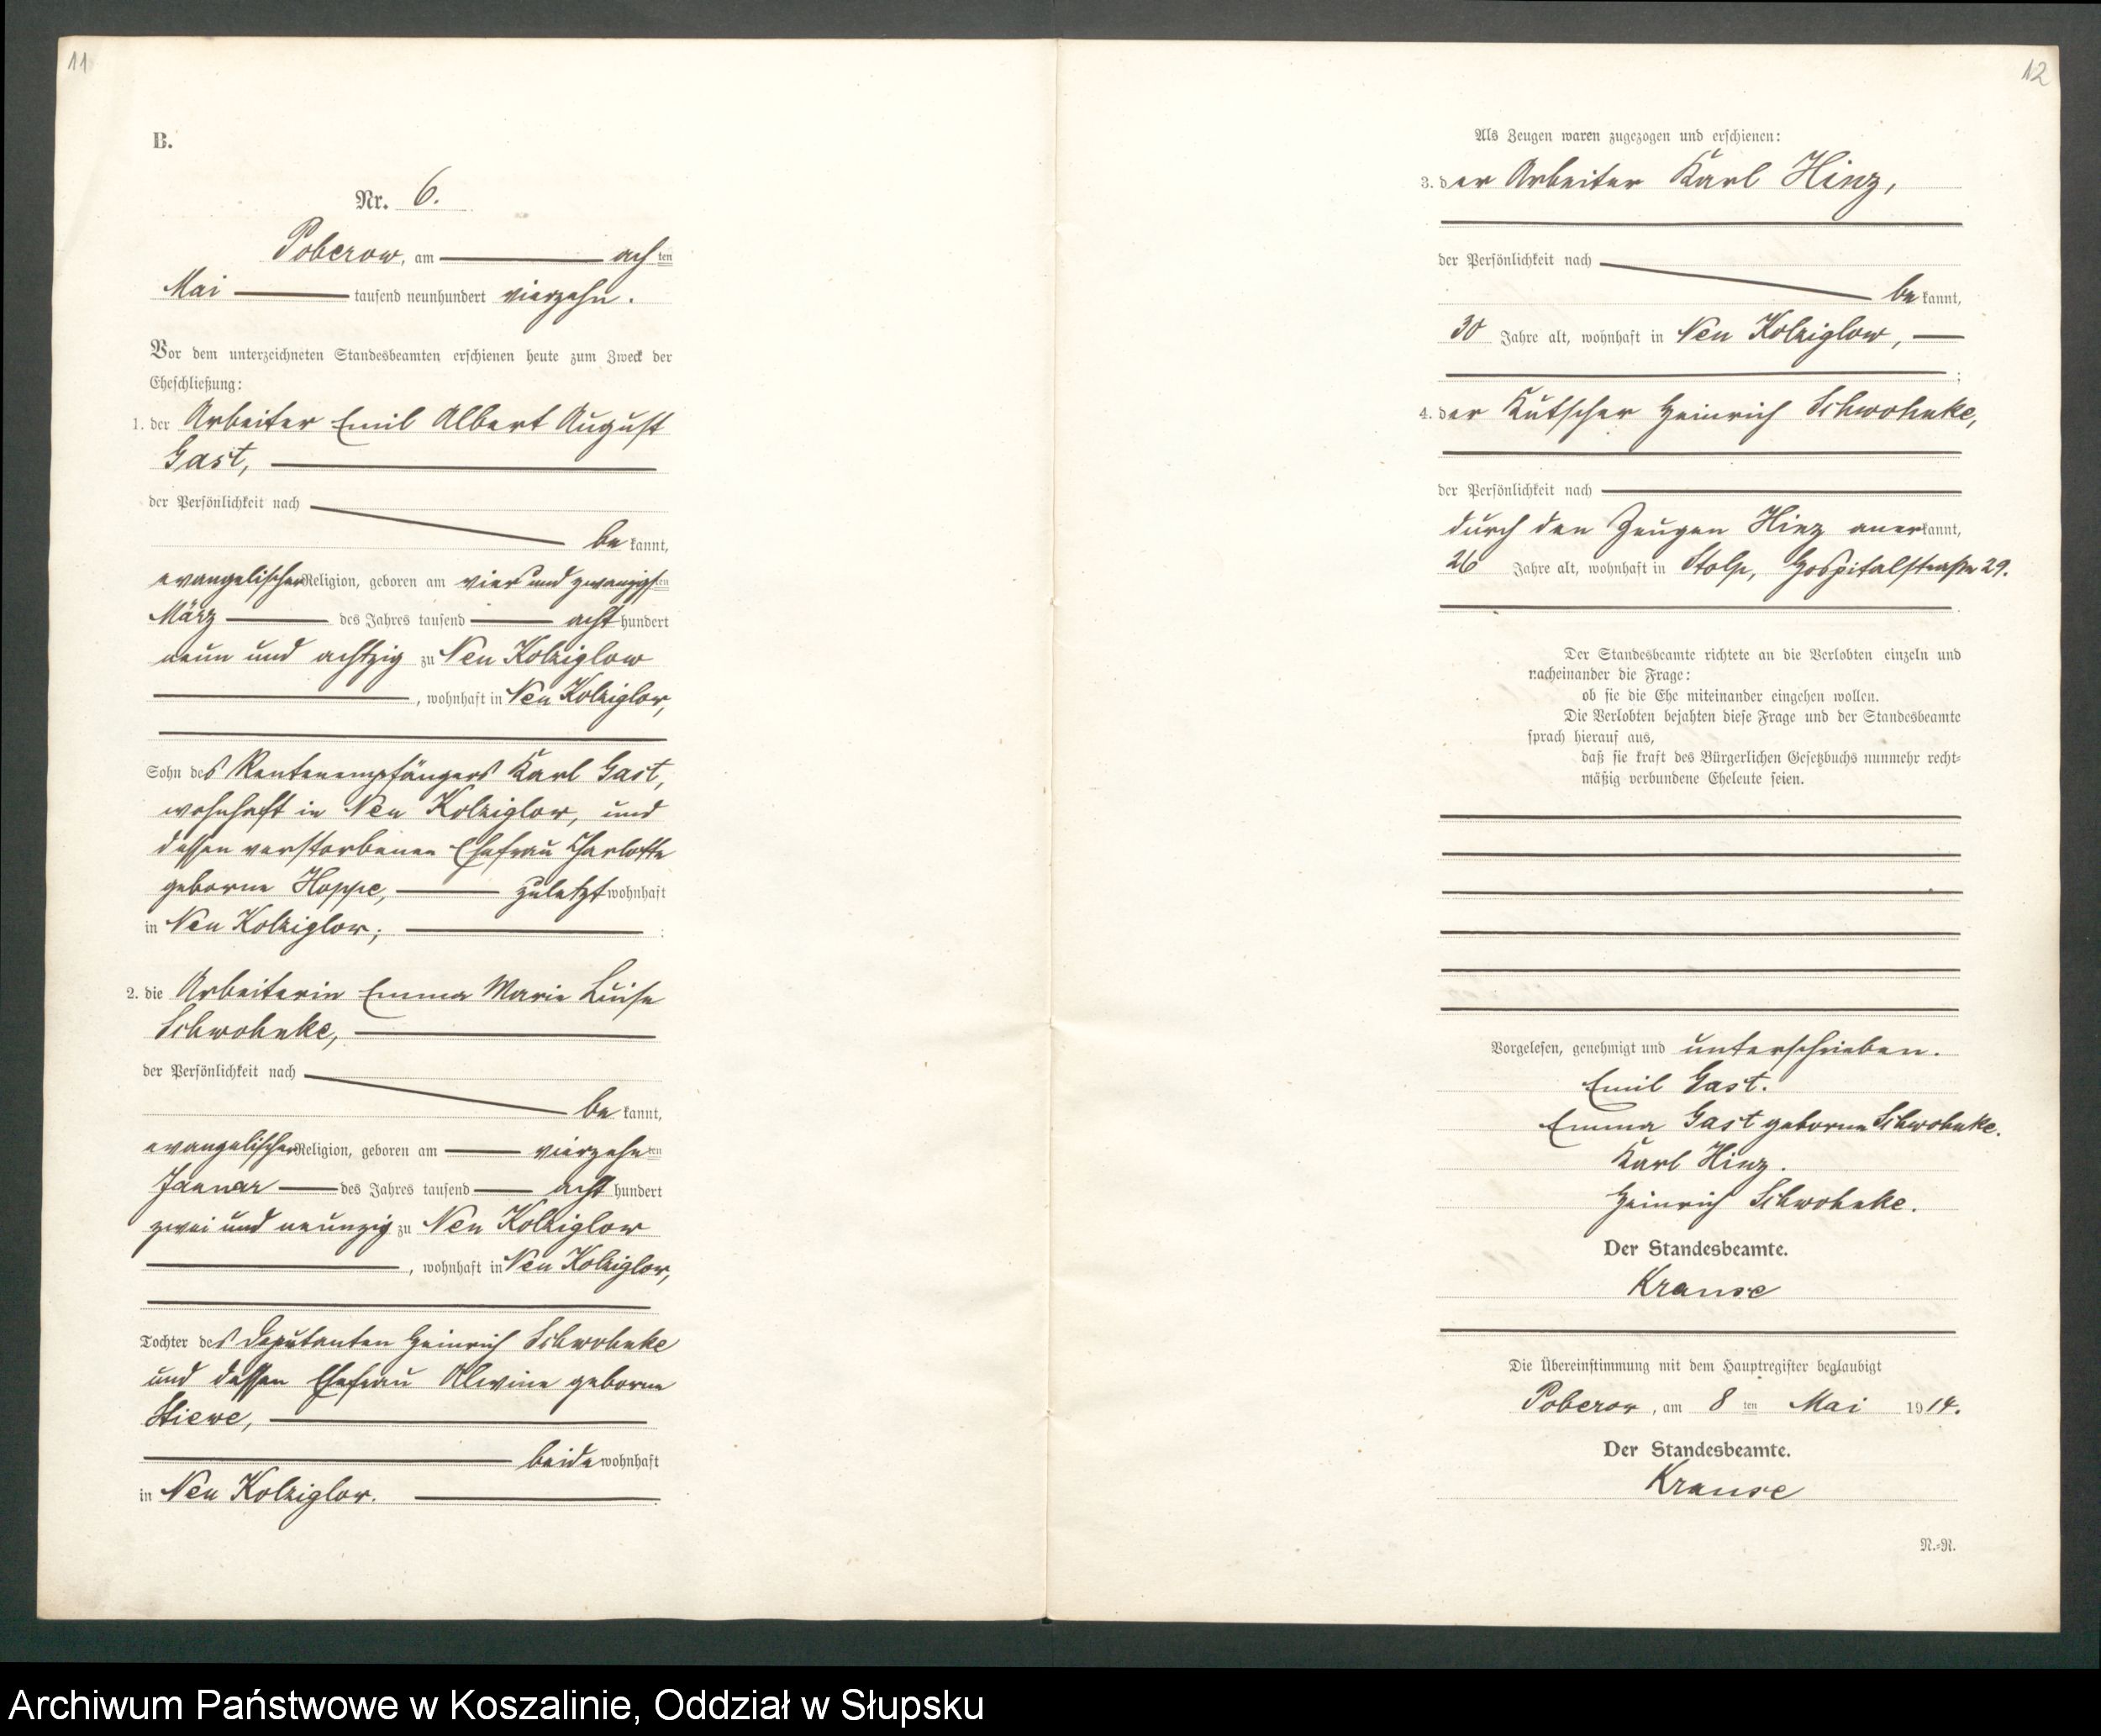 11
B.
Nr. 6.
Poberow, am achten
Mai tausend neunhundert vierzehn.
Vor dem unterzeichneten Standesbeamten erschienen heute zum Zweck der
Eheschließung:
1. der Arbeiter Emil Albert August
Gast,
der Persönlichkeit nach
bekannt,
evangelischer Religion, geboren am vier und zwanzigsten
März des Jahres tausend acht hundert
neun und achtzig zu Neu Kolziglow
, wohnhaft in Neu Kolziglow,
Sohn des Rentenempfängers Karl Gast,
wohnhaft in Neu Kolziglow, und
dessen verstorbenen Ehefrau Charlotte
geborne Hoppe, zuletzt wohnhaft
in Neu Kolziglow;
2. die Arbeiterin Emma Marie Luise
Schwohnke,
der Persönlichkeit nach
bekannt,
evangelischer Religion, geboren am vierzehnten
Januar des Jahres tausend acht hundert
zwei und neunzig zu Neu Kolziglow
, wohnhaft in Neu Kolziglow,
Tochter des Deputanten Heinrich Schwohnke
und dessen Ehefrau Alwine geborne
Stiewe,
beide wohnhaft
in Neu Kolziglow.
12
Als Zeugen waren zugezogen und erschienen:
3. der Arbeiter Karl Hinz,
der Persönlichkeit nach
bekannt,
30 Jahre alt, wohnhaft in Neu Kolziglow,
;
4. der Kutscher Heinrich Schwohnke,
der Persönlichkeit nach
durch den Zeugen Hinz anerkannt,
26 Jahre alt, wohnhaft in Stolp, Hospitalstraße 29.
Der Standesbeamte richtete an die Verlobten einzeln und
nacheinander die Frage:
ob sie die Ehe miteinander eingehen wollen.
Die Verlobten bejahten diese Frage und der Standesbeamte
sprach hierauf aus,
daß sie kraft des Bürgerlichen Gesetzbuchs nunmehr recht-
mäßig verbundene Eheleute seien.
Vorgelesen, genehmigt und unterschrieben.
Emil Gast.
Emma Gast geborne Schwohnke.
Karl Hinz.
Heinrich Schwohnke.
Der Standesbeamte.
Krause
Die Übereinstimmung mit dem Hauptregister beglaubigt
Poberow, am 8ten Mai 1914.
Der Standesbeamte.
Krause
N.-R.
Archiwum Państwowe w Koszalinie, Oddział w Słupsku